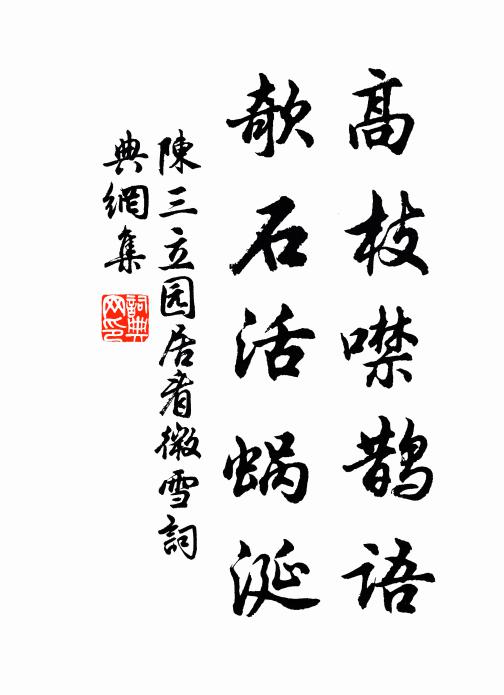 高枝噤鹊语
欹石活蜗涎
陳三立园居看微雪詞
典網集
詞典网印